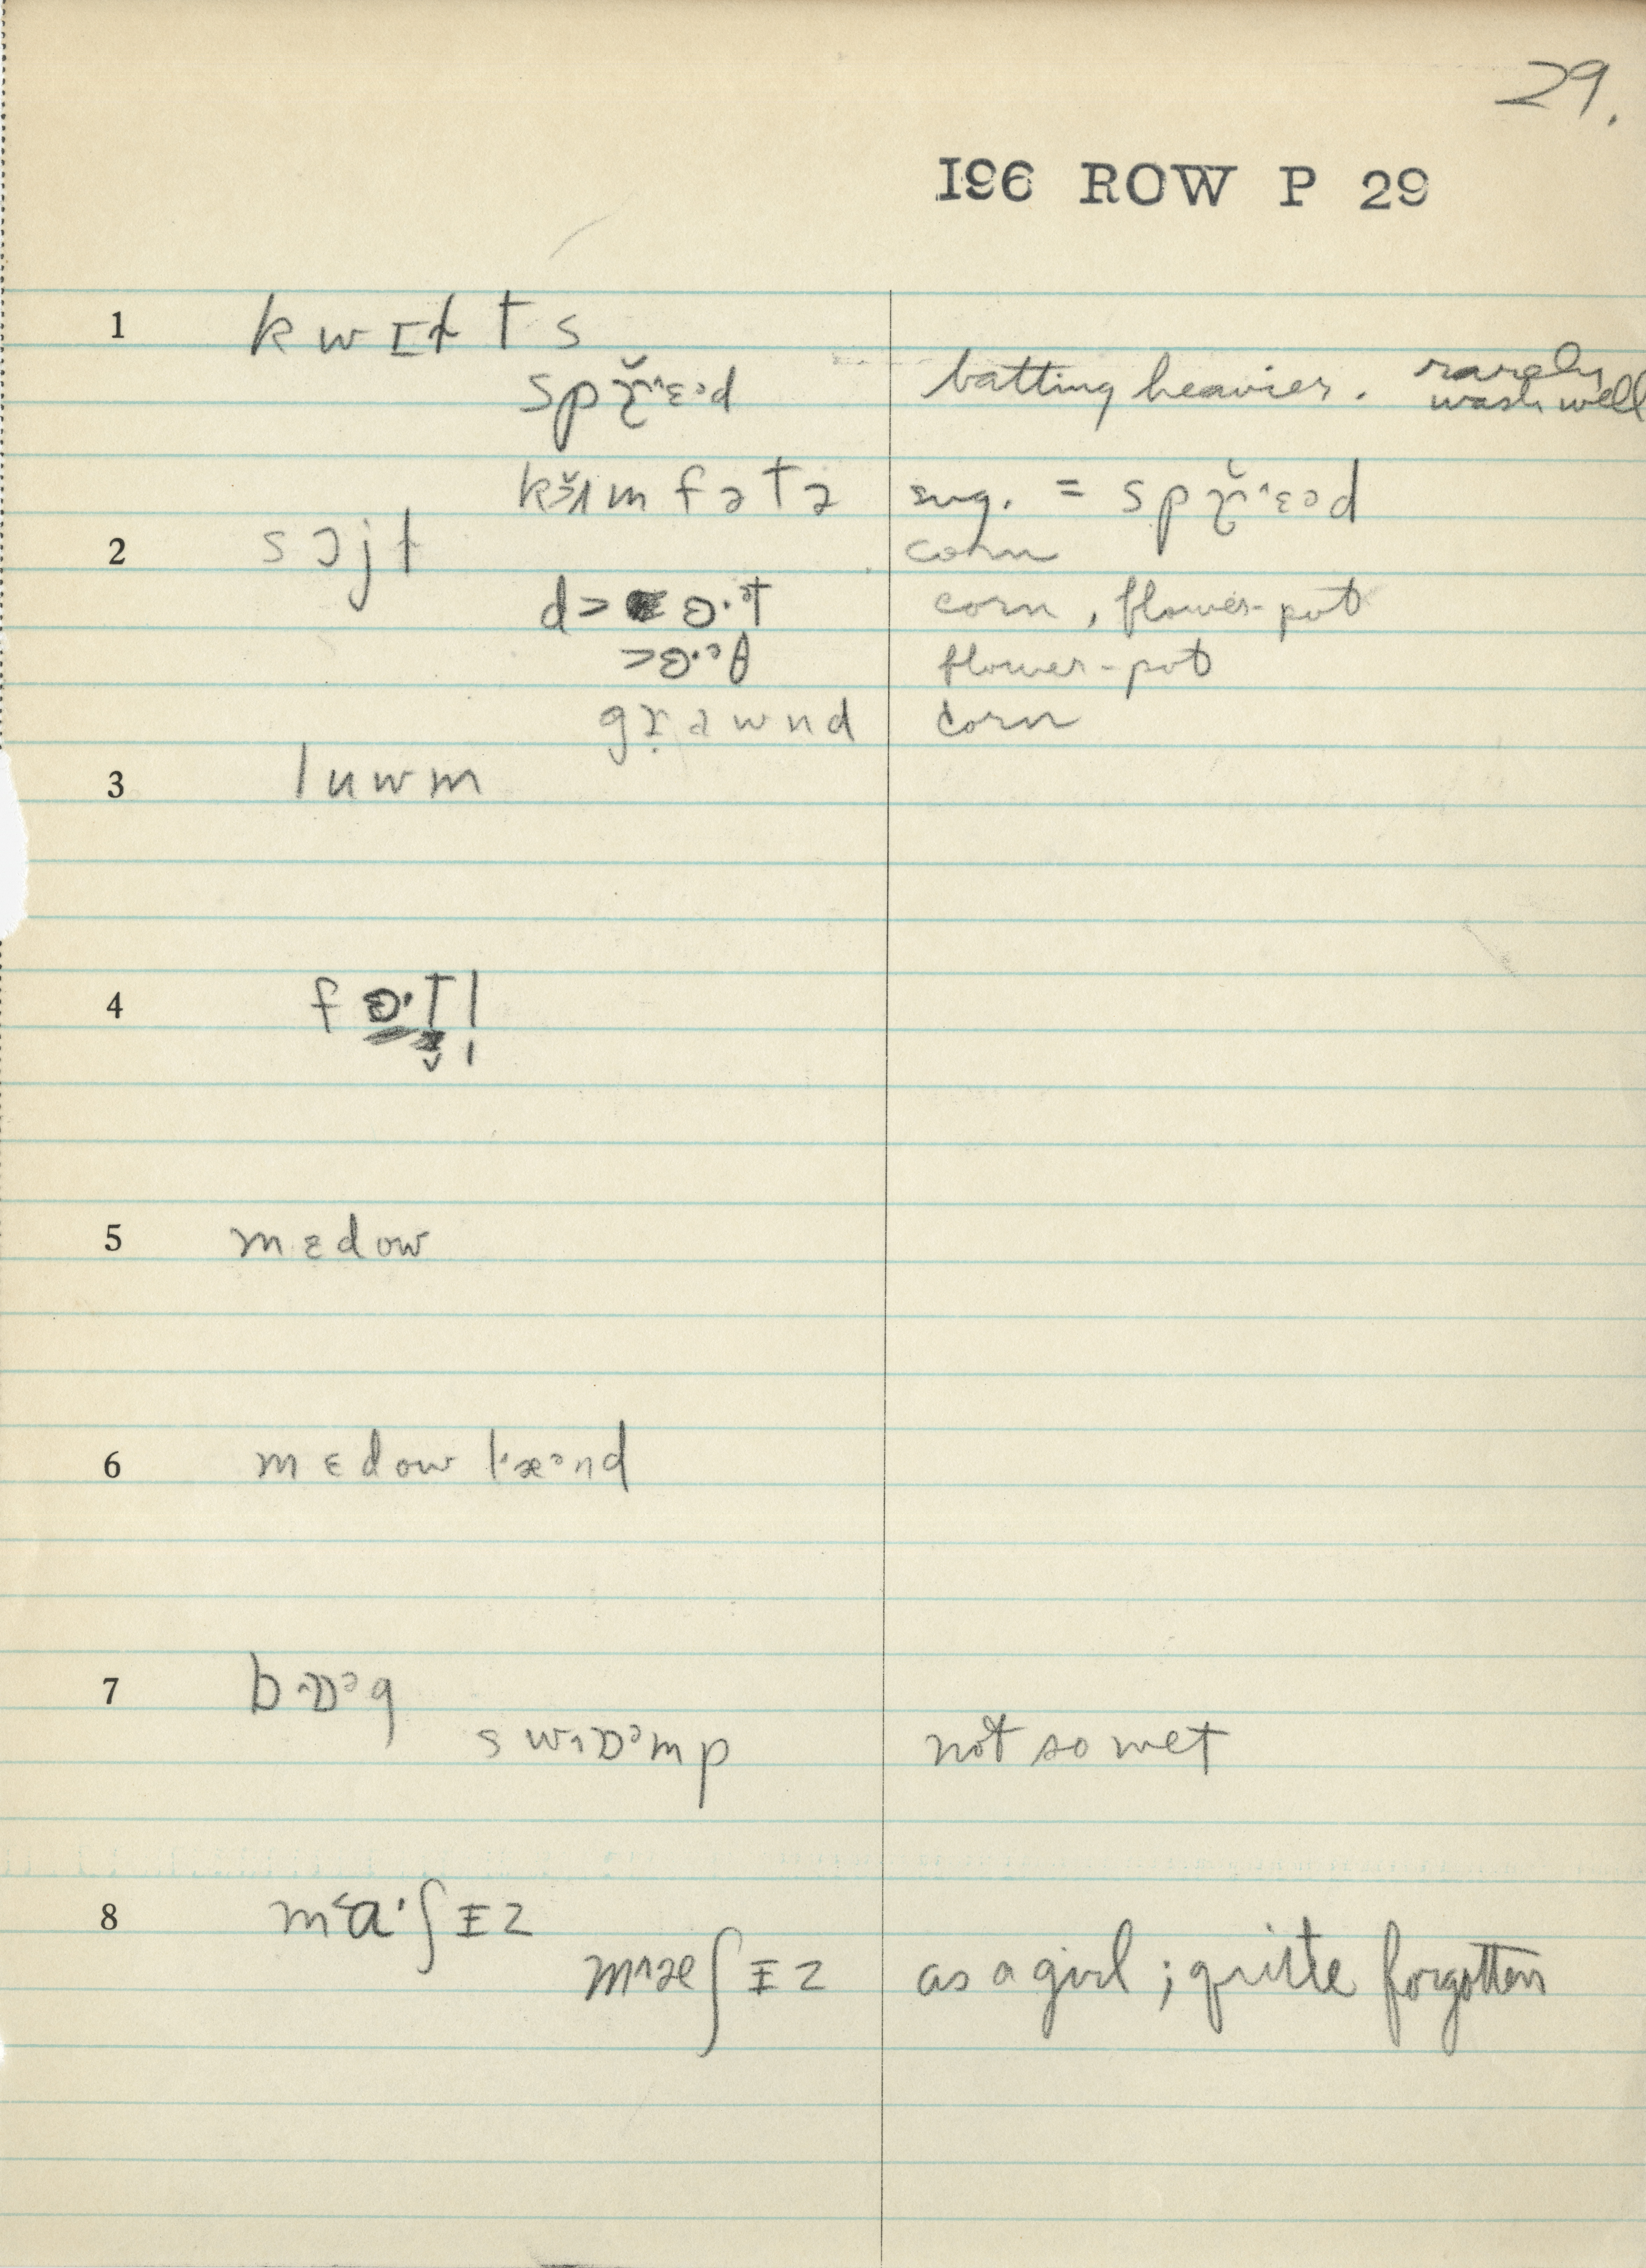 29.
I96 ROW P 29
1 kwɪltts
spɹ̌ˑɛᵊd batting heavier. rarely wash well
kʌmfətə sug. = spɹ̌ˑɛᵊd
2 sɔjl corn
dɜˑᵊt corn, flower-pot
ɜˑᵊθ flower-pot
gɹawnd corn
3 luwm
4 fɜˑtl
5 mɛdow
6 mɛdow lˑæᵊnd
7 bˑɒᵊg
swɒᵊmp not so wet
8 maˑʃɪz
mæʃɪz as a girl; quite forgotten